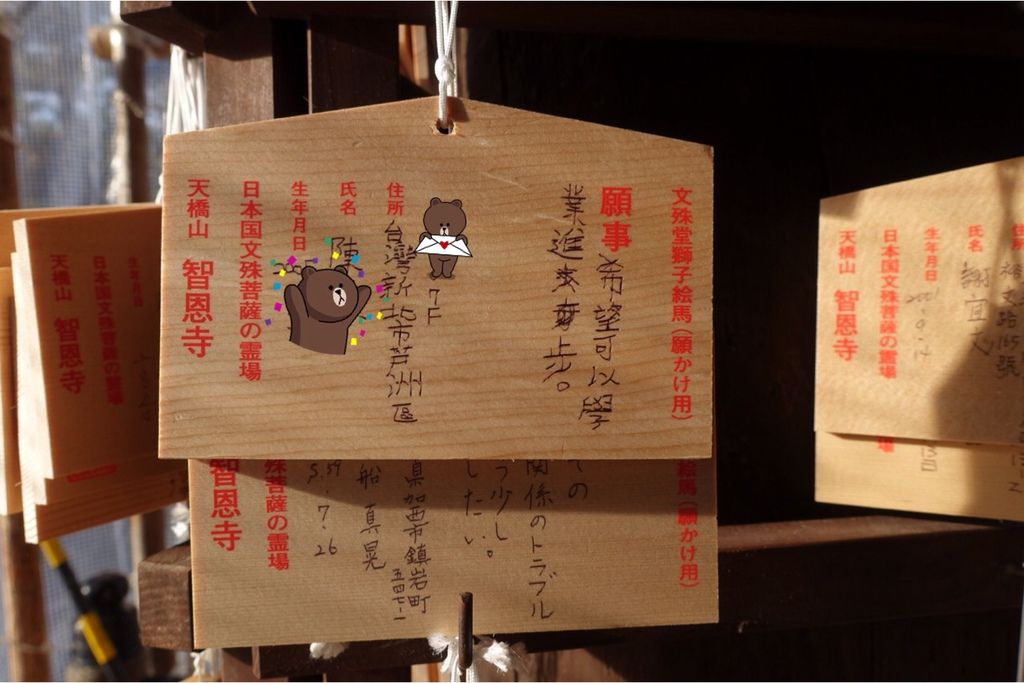 文殊堂獅子絵馬(願かけ用)
願事
希望可以學
業進步。
住所
台灣新北市芦洲區
7F
氏名
陳
生年月日
日本国文殊菩薩の霊場
天橋山 智恩寺
絵馬(願かけ用)
の
関係のトラブル
っ少し
したい。
県加西市鎮岩町
船 真晃
S.59・7・26
殊菩薩の霊場
智恩寺
生年月日
日本国文殊菩薩の霊場
天橋山 智恩寺
路165號
氏名
宜
生年月日
2001.9.14
日本国文殊菩薩の霊場
天橋山 智恩寺
場
日